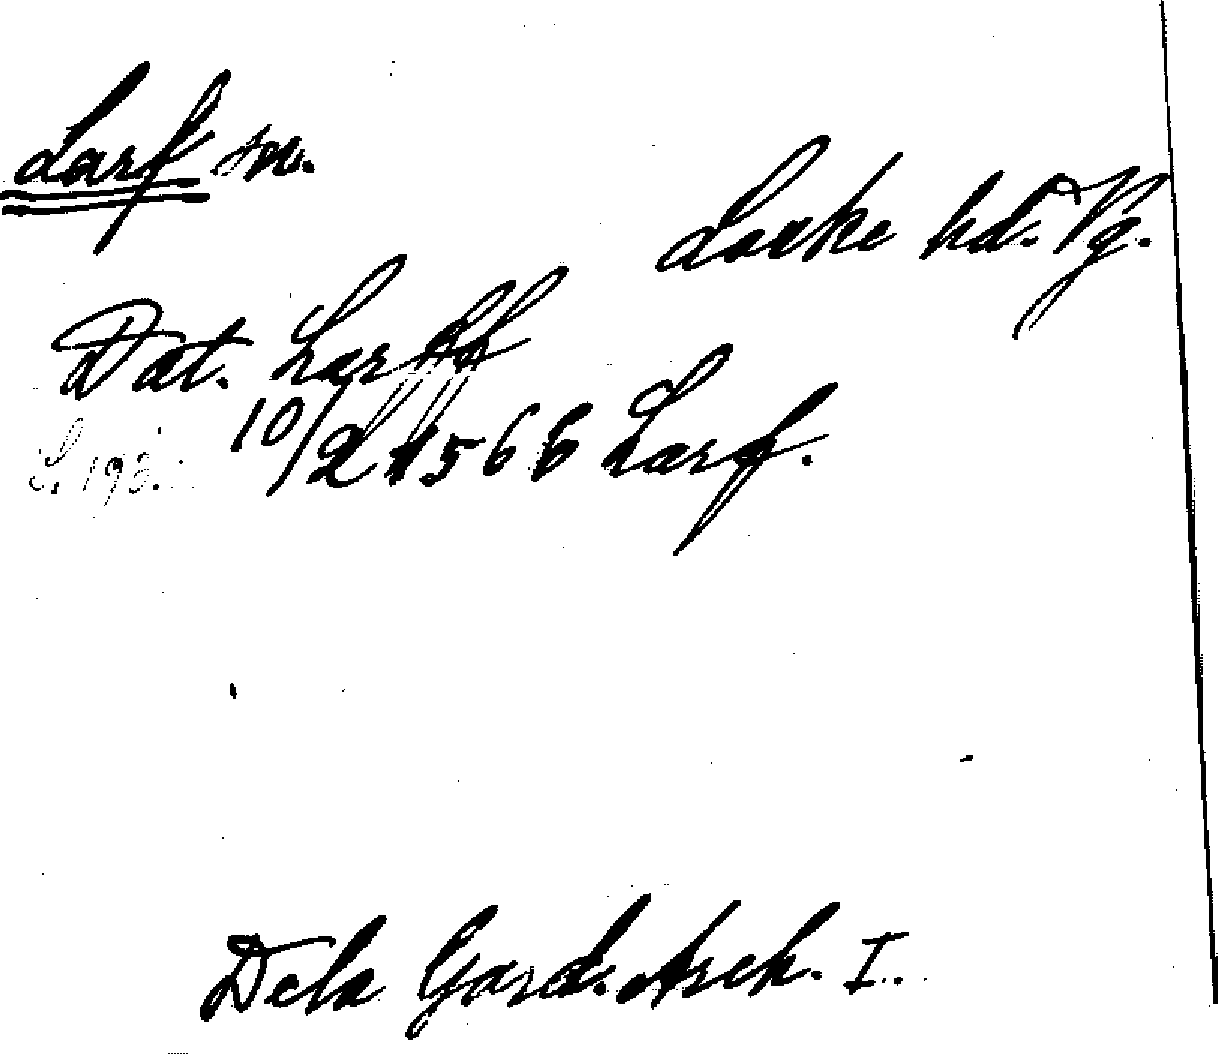 Larf sn.
Laske hd. Vg.
Dat. Larff
10/2 1566 Larf.
S. 193.
Dela Gard. Arch. I.